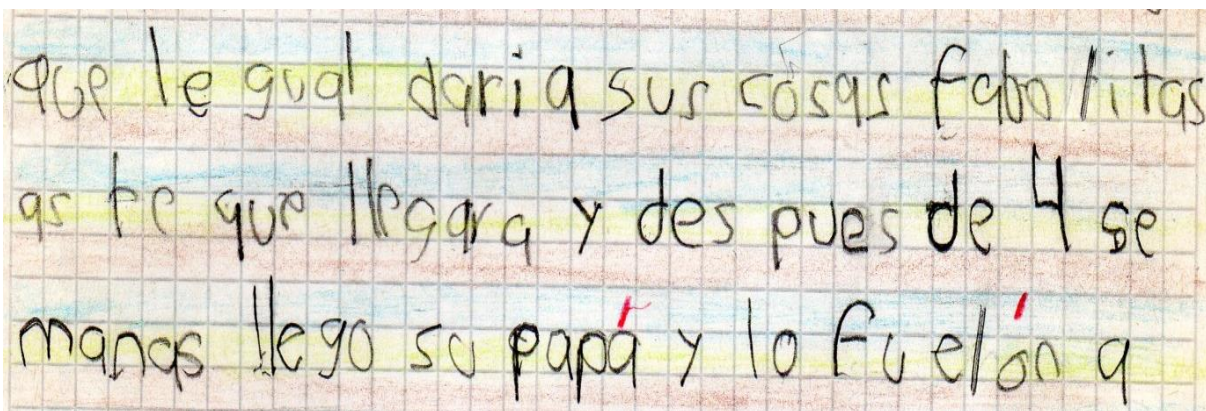 que le gual daria sus cosas fabolitas
as te que llegara y des pues de 4 se
manas llego su papá y lo fuelón a